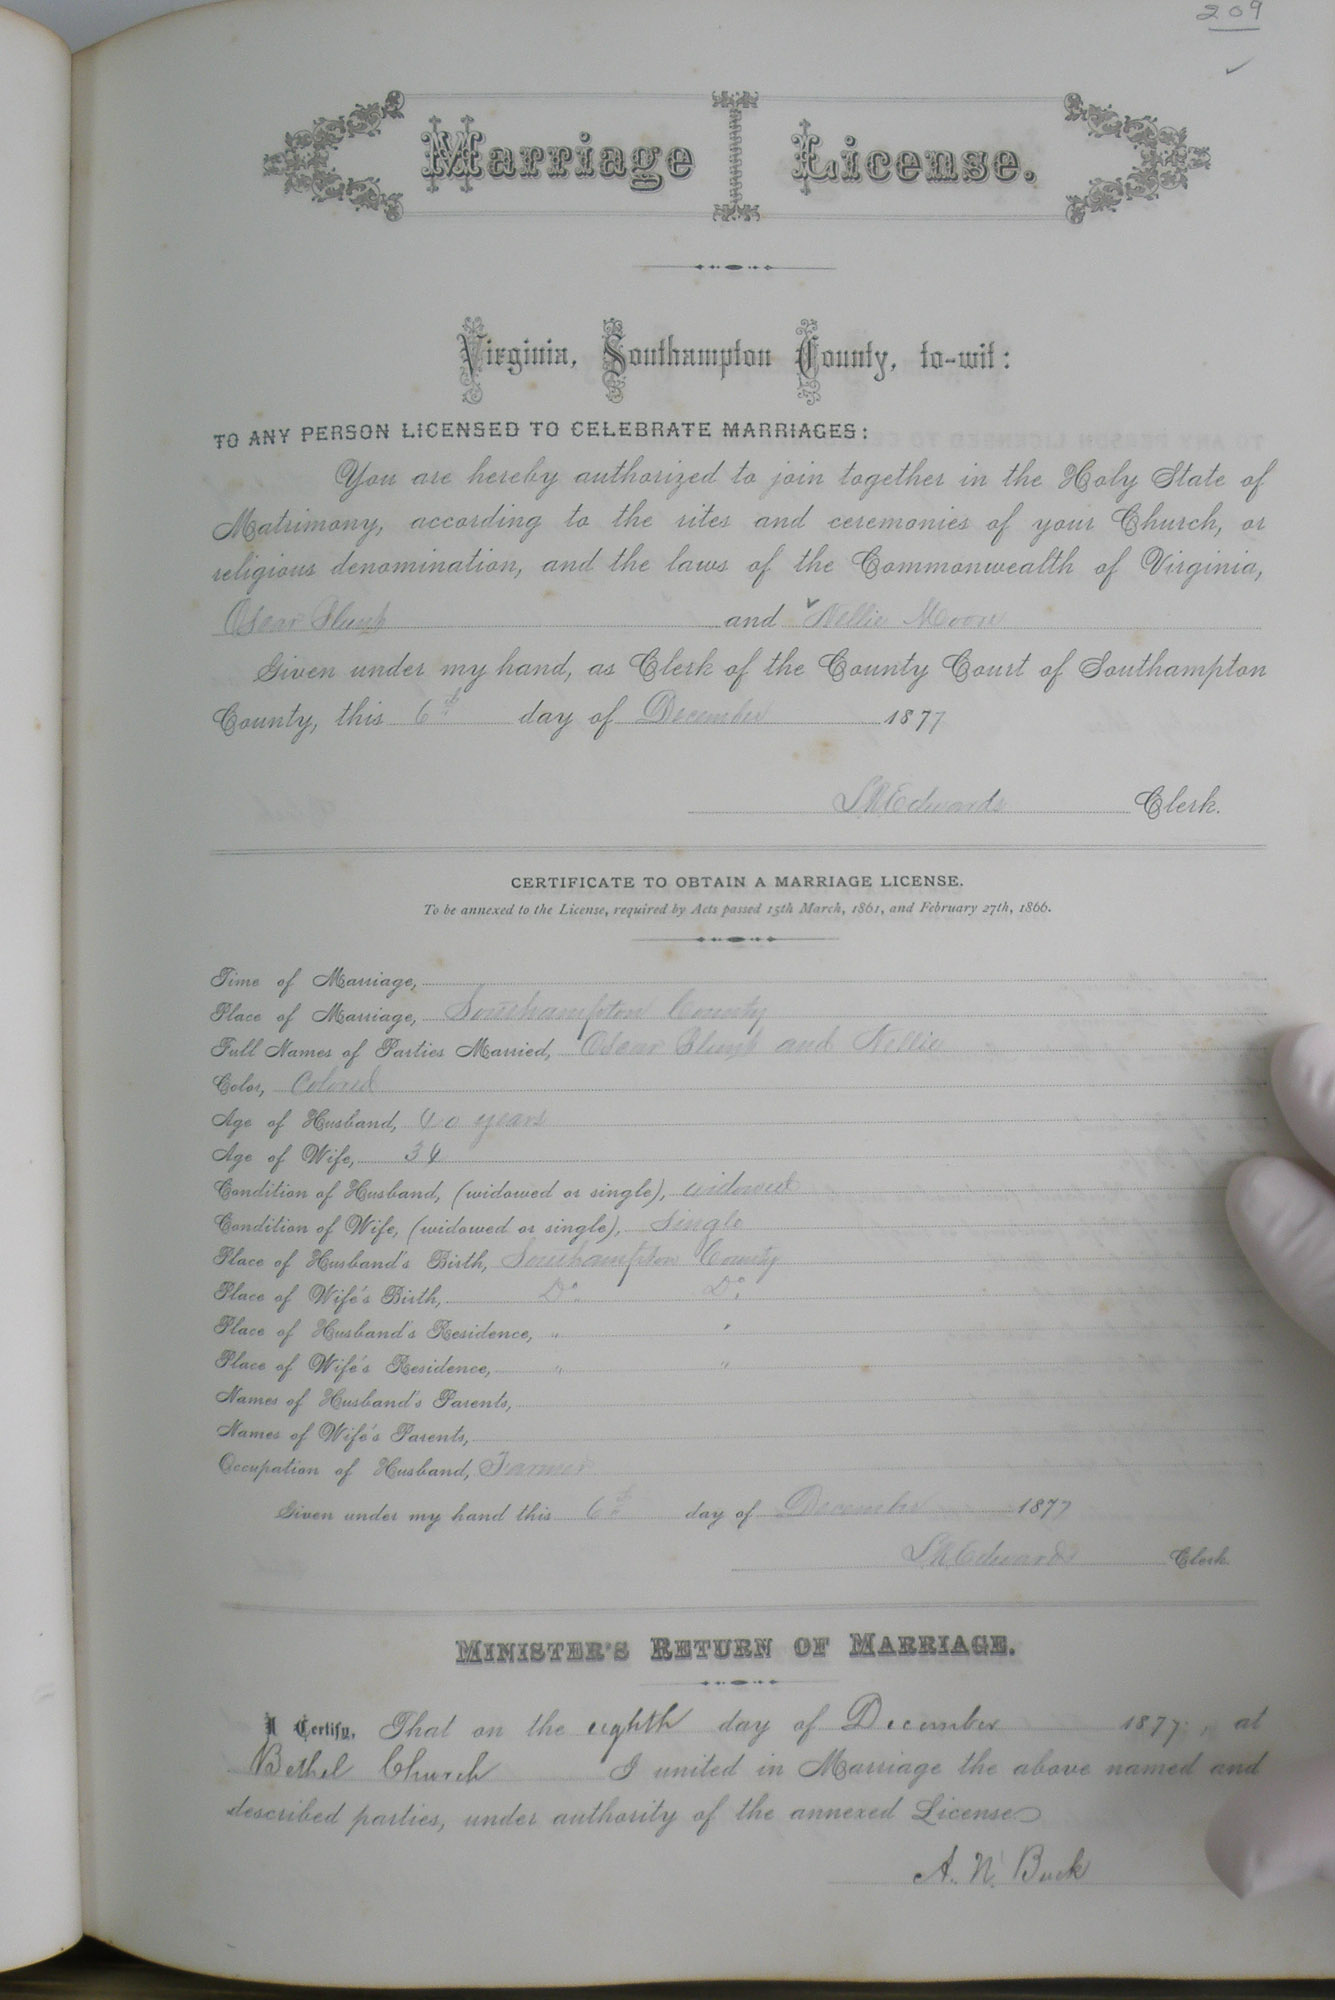 209
Marriage License.
Virginia, Southampton County, to-wit:
TO ANY PERSON LICENSED TO CELEBRATE MARRIAGES:
You are hereby authorized to join together in the Holy State of
Matrimony, according to the rites and ceremonies of your Church, or
religious denomination, and the laws of the Commonwealth of Virginia,
Oscar and Nellie Moore
Given under my hand, as Clerk of the County Court of Southampton
County, this 6th day of December 1877
Edwards Clerk.
CERTIFICATE TO OBTAIN A MARRIAGE LICENSE.
To be annexed to the License, required by Acts passed 15th March, 1861, and February 27th, 1866.
Time of Marriage,
Place of Marriage, Southampton County
Full Names of Parties Married, Oscar and Nellie
Color, Colored
Age of Husband, 40 years
Age of Wife, 34
Condition of Husband, (widowed or single), widowed
Condition of Wife, (widowed or single), Single
Place of Husband's Birth, Southampton County
Place of Wife's Birth, Do. Do.
Place of Husband's Residence, " "
Place of Wife's Residence, " "
Names of Husband's Parents,
Names of Wife's Parents,
Occupation of Husband, Farmer
Given under my hand this 6th day of December 1877
Edwards Clerk
MINISTER'S RETURN OF MARRIAGE.
I Certify, That on the eighth day of December 1877, at
Bethel Church I united in Marriage the above named and
described parties, under authority of the annexed License
A. N. Buck